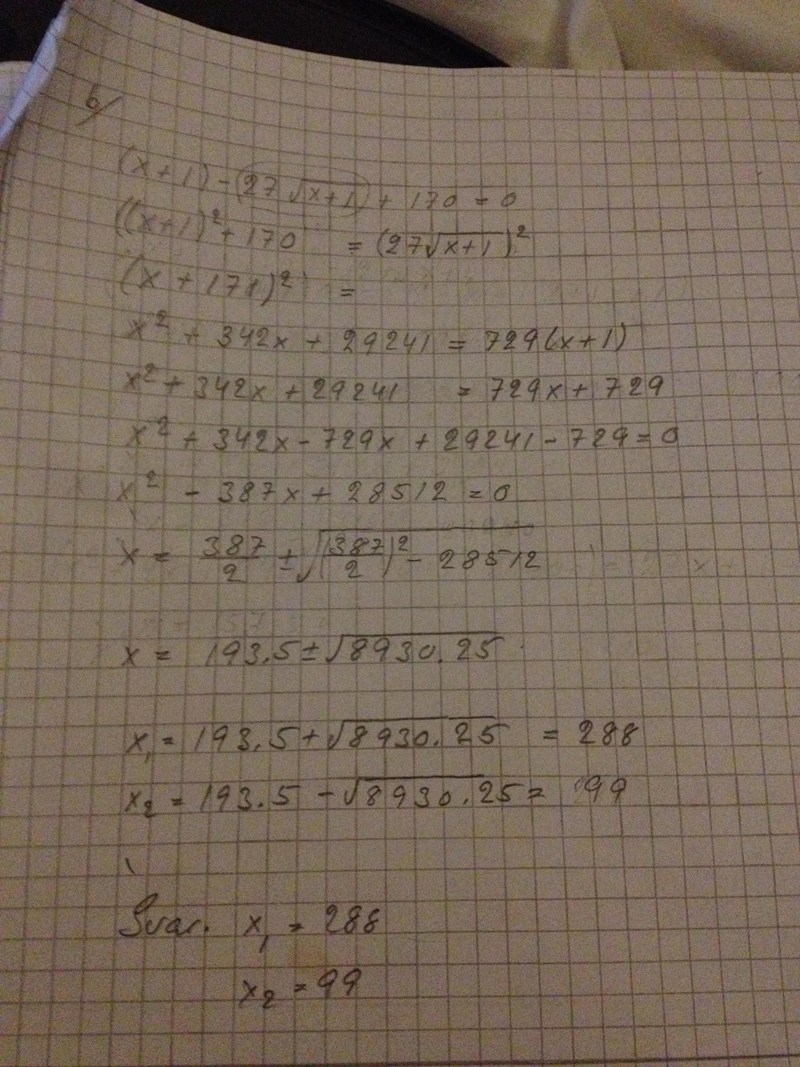 b/
(x+1) - (27√x+1) + 170 = 0
((x+1)² + 170 = (27√x+1)²
(x + 171)² =
x² + 342x + 29241 = 729(x+1)
x² + 342x + 29241 = 729x + 729
x² + 342x - 729x + 29241 - 729 = 0
x² - 387x + 28512 = 0
x = 387/2 ± √(387/2)² - 28512
x = 193.5 ± √8930.25
x₁ = 193.5 + √8930.25 = 288
x₂ = 193.5 - √8930.25 = 99
Svar. x₁ = 288
x₂ = 99